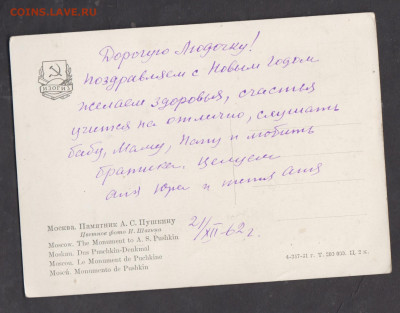 COINS.LAVE.RU
ИЗОГИЗ
Дорогую Людочку!
поздравляем с Новым Годом
желаем здоровья, счастья
учится на отлично, слушать
бабу, Маму, Папу и любить
братика. Целуем
Юра и тётя Аня
21/XII-62 г.
Москва. Памятник А. С. Пушкину
Цветное фото И. Шагина
Moscow. The Monument to A. S. Pushkin
Moskau. Das Puschkin-Denkmal
Moscou. Le Monument de Pouchkine
Moscú. Monumento de Pushkin